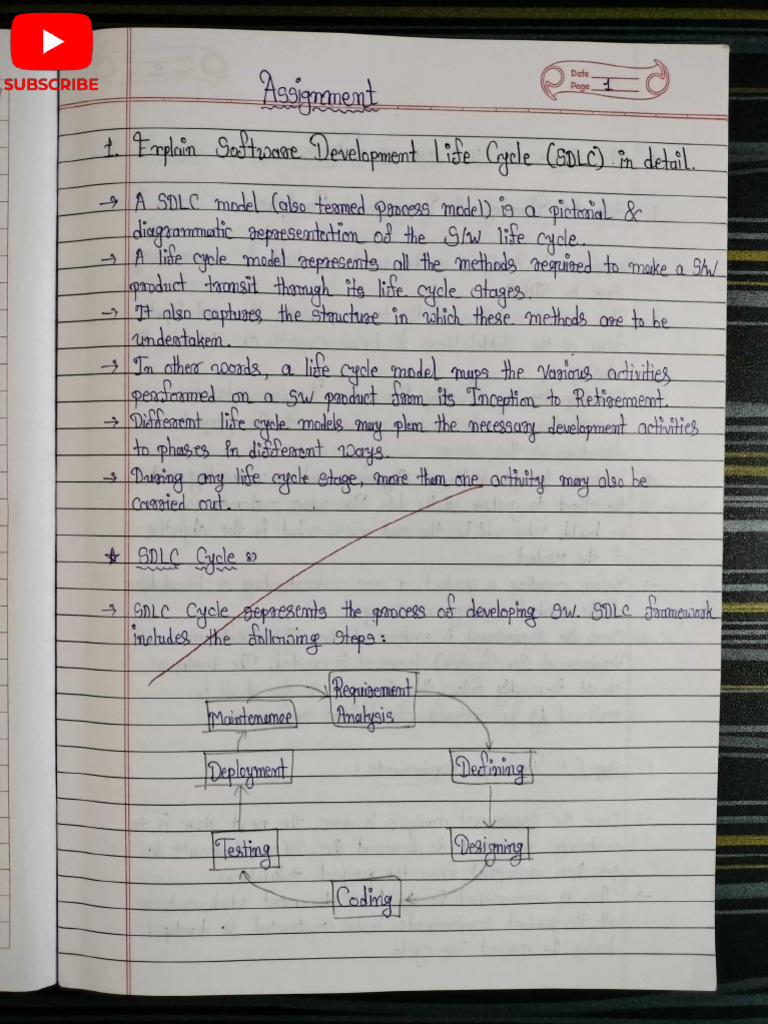 SUBSCRIBE
Assignment
Date
Page 1
1. Explain Software Development Life Cycle (SDLC) in detail.
→ A SDLC model (also termed process model) is a pictorial &
diagrammatic representation of the S/W life cycle.
→ A life cycle model represents all the methods required to make a S/W
product transit through its life cycle stages.
→ It also captures the structure in which these methods are to be
undertaken.
→ In other words, a life cycle model maps the various activities
performed on a SW product from its Inception to Retirement.
→ Different life cycle models may plan the necessary development activities
to phases in different ways.
→ During any life cycle stage, more than one activity may also be
carried out.
★ SDLC Cycle :
→ SDLC Cycle represents the process of developing SW. SDLC framework
includes the following steps :
Requirement
Analysis
Maintenance
Deployment
Defining
Testing
Designing
Coding